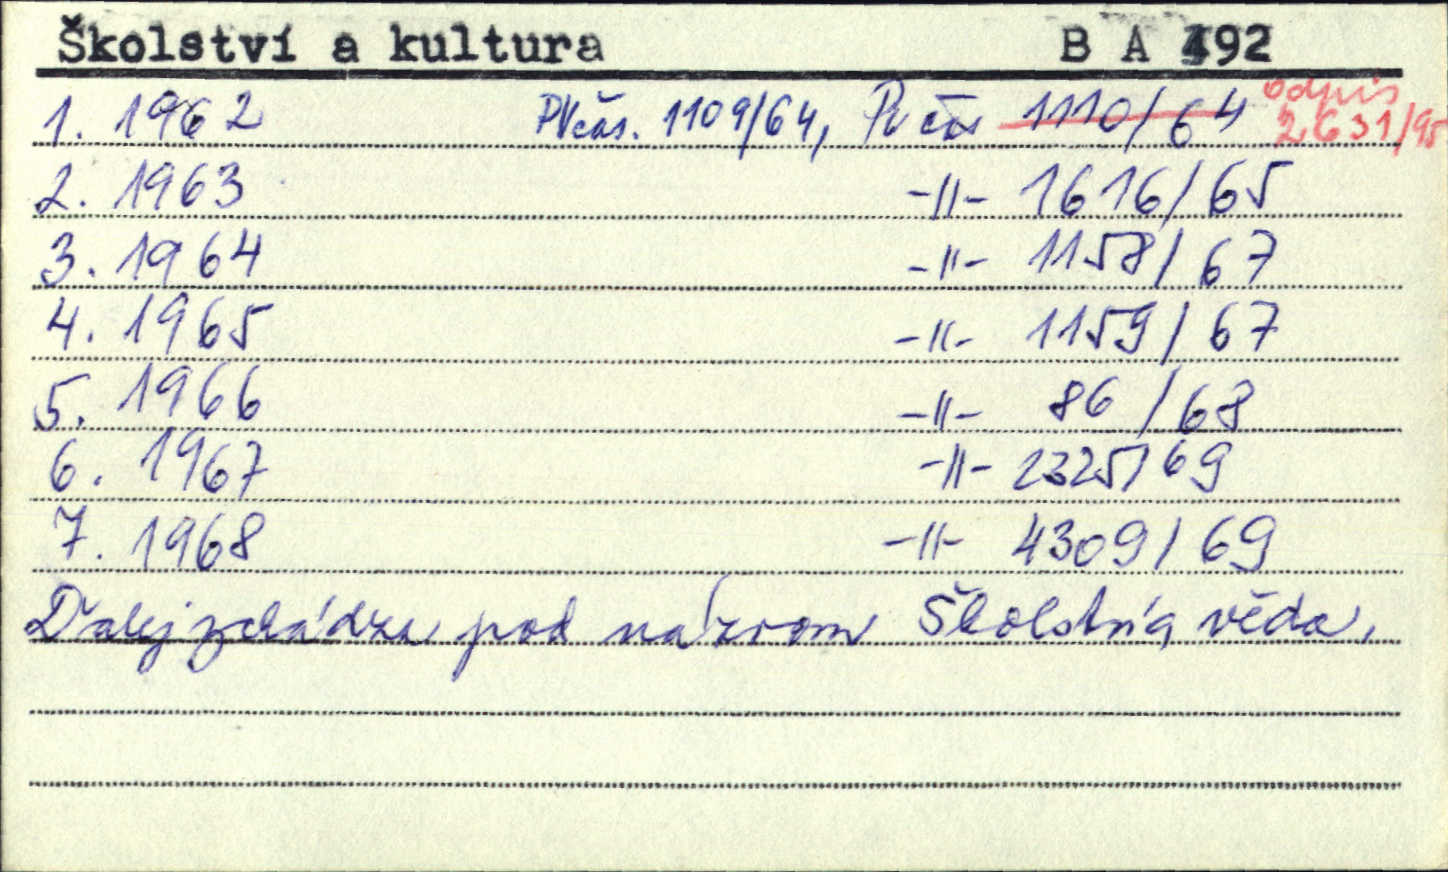 Školství a kultura B A 492
1. 1962 PVčas. 1109/64, PV čas 1110/64 odpis 2631/95
2. 1963 -||- 1616/65
3. 1964 -||- 1158/67
4. 1965 -||- 1159/67
5. 1966 -||- 86/68
6. 1967 -||- 2325/69
7. 1968 -||- 4309/69
Ďalej pod názvom Školství a věda.